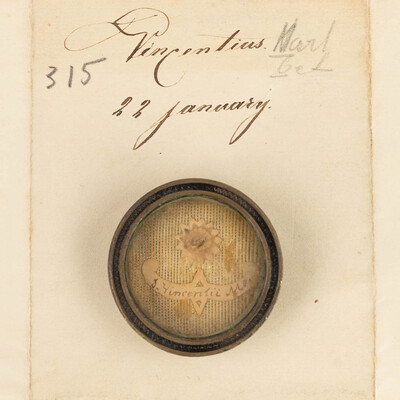 Vincentius. Mart
315
22 january.
S. Vincentii M.